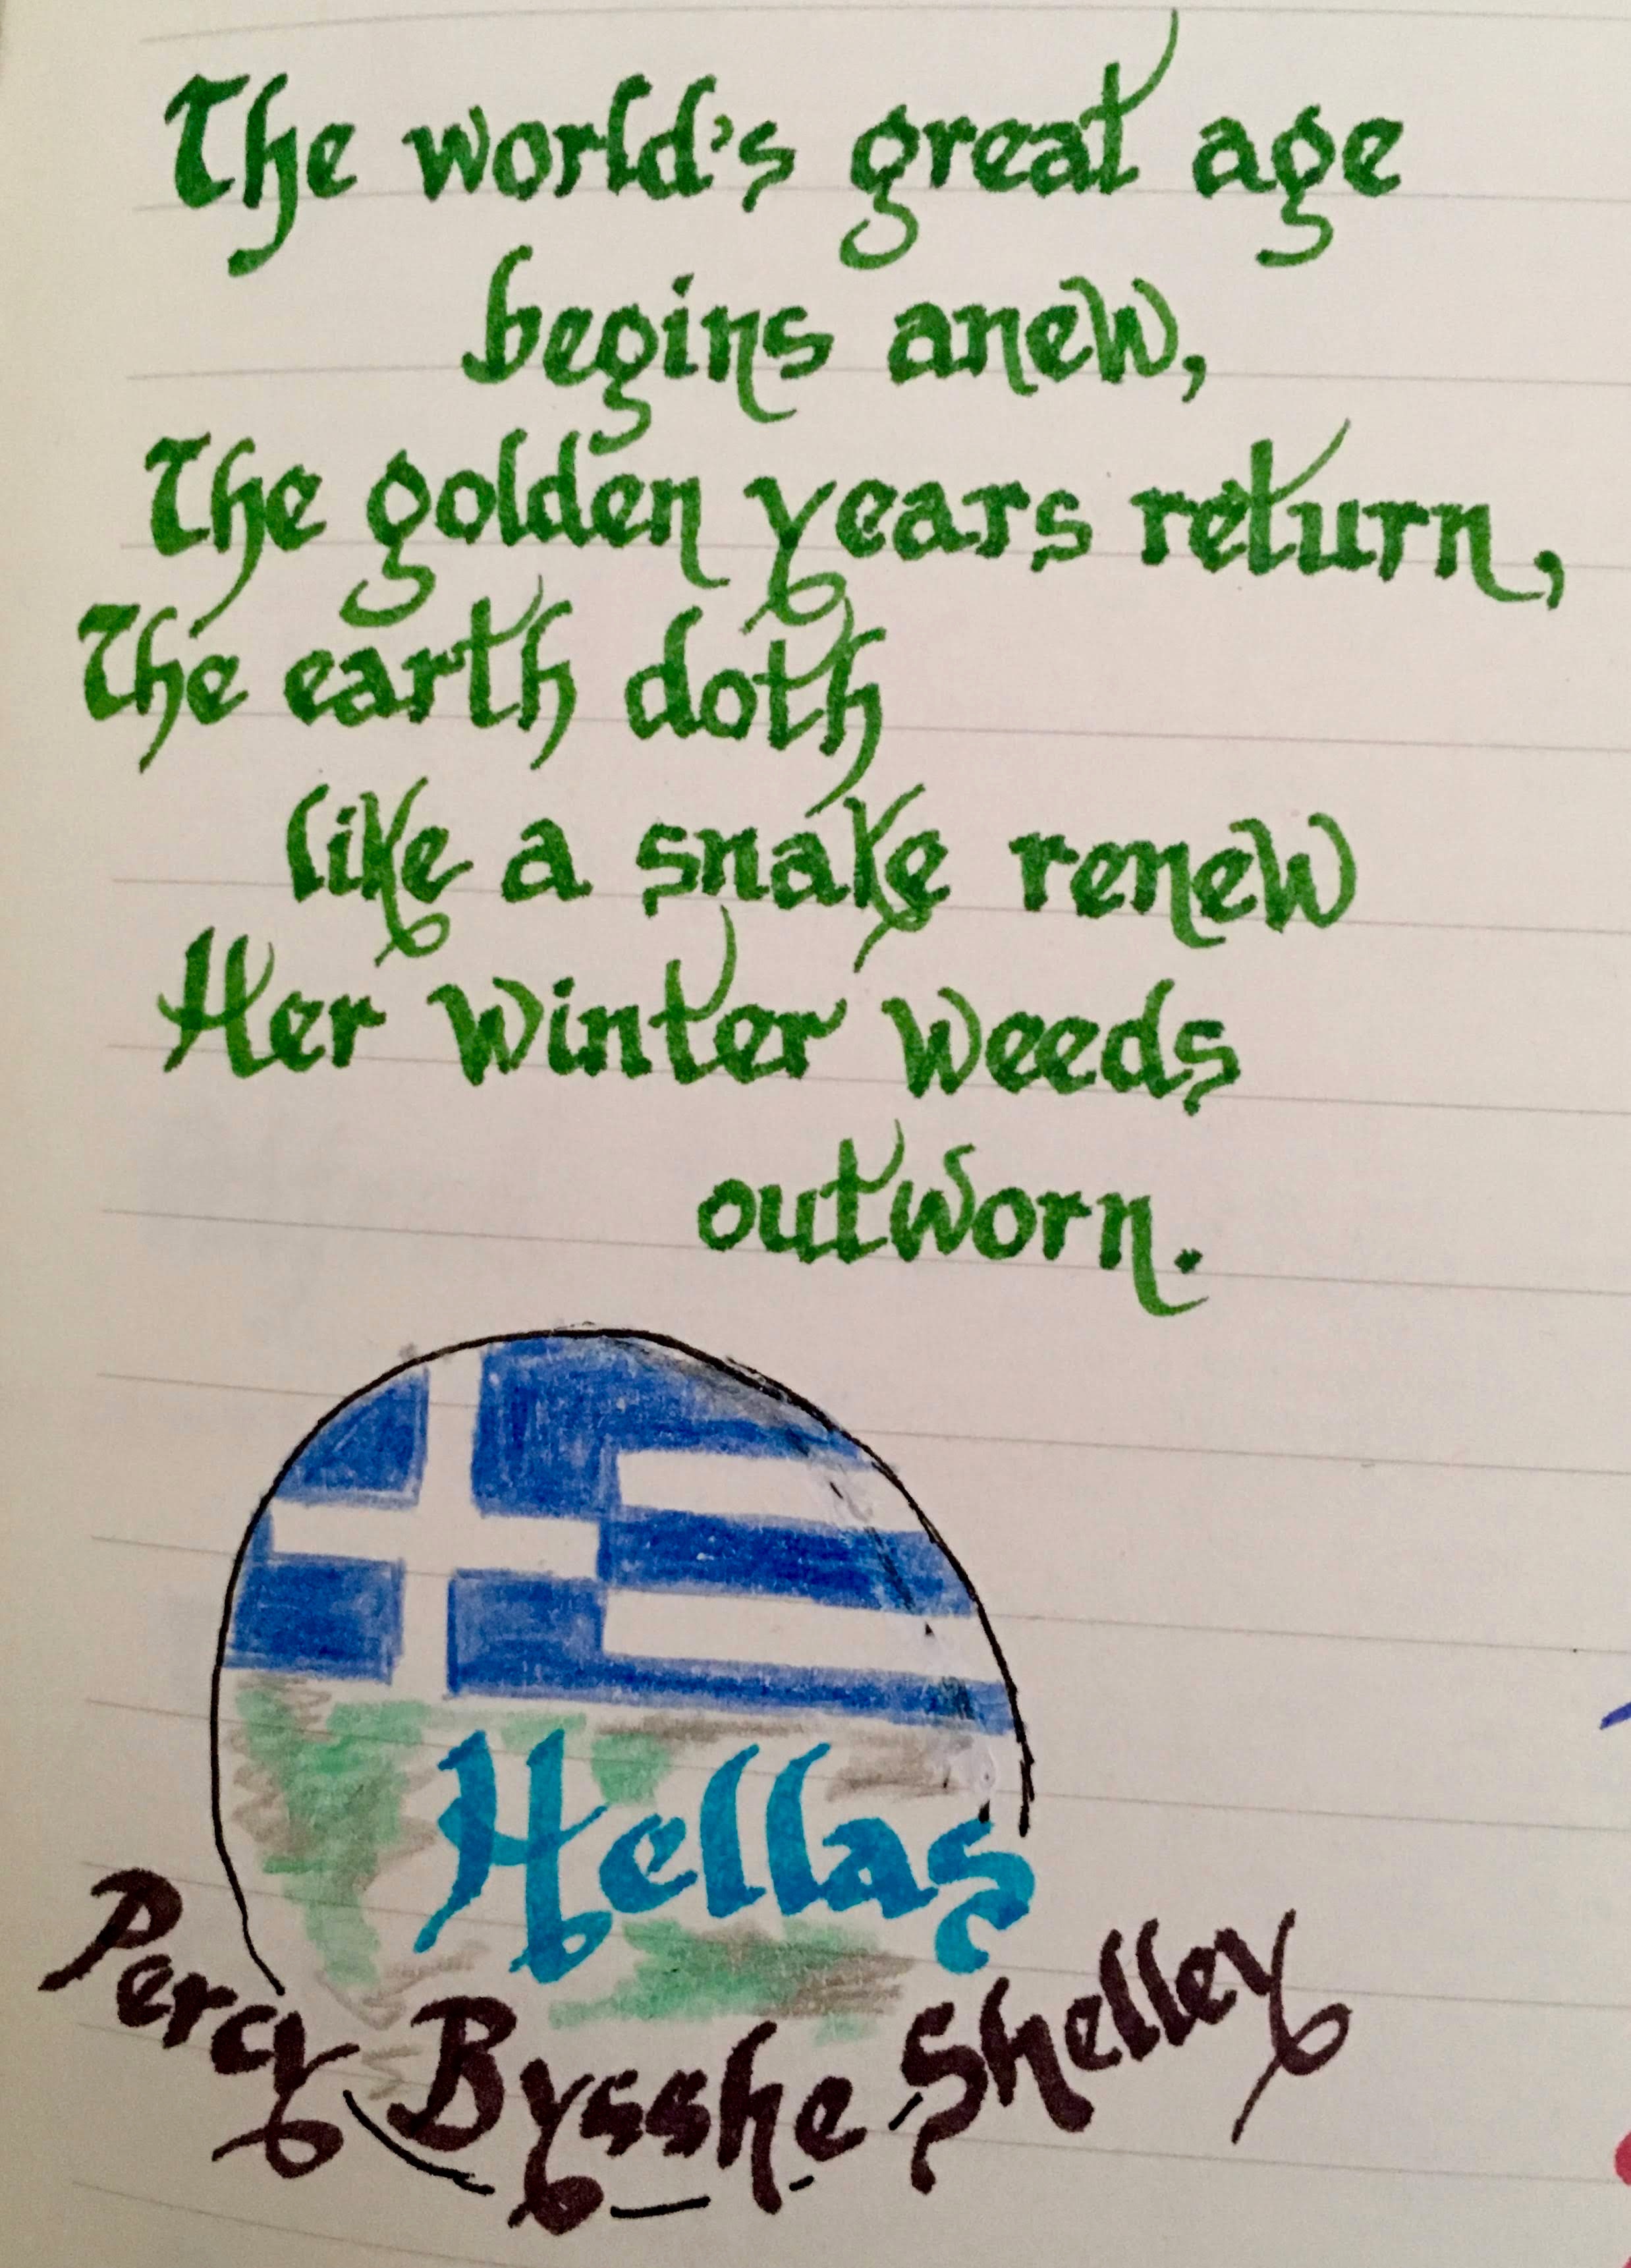 The world's great age
begins anew,
The golden years return,
The earth doth
like a snake renew
Her winter weeds
outworn.
Hellas
Percy Bysshe Shelley